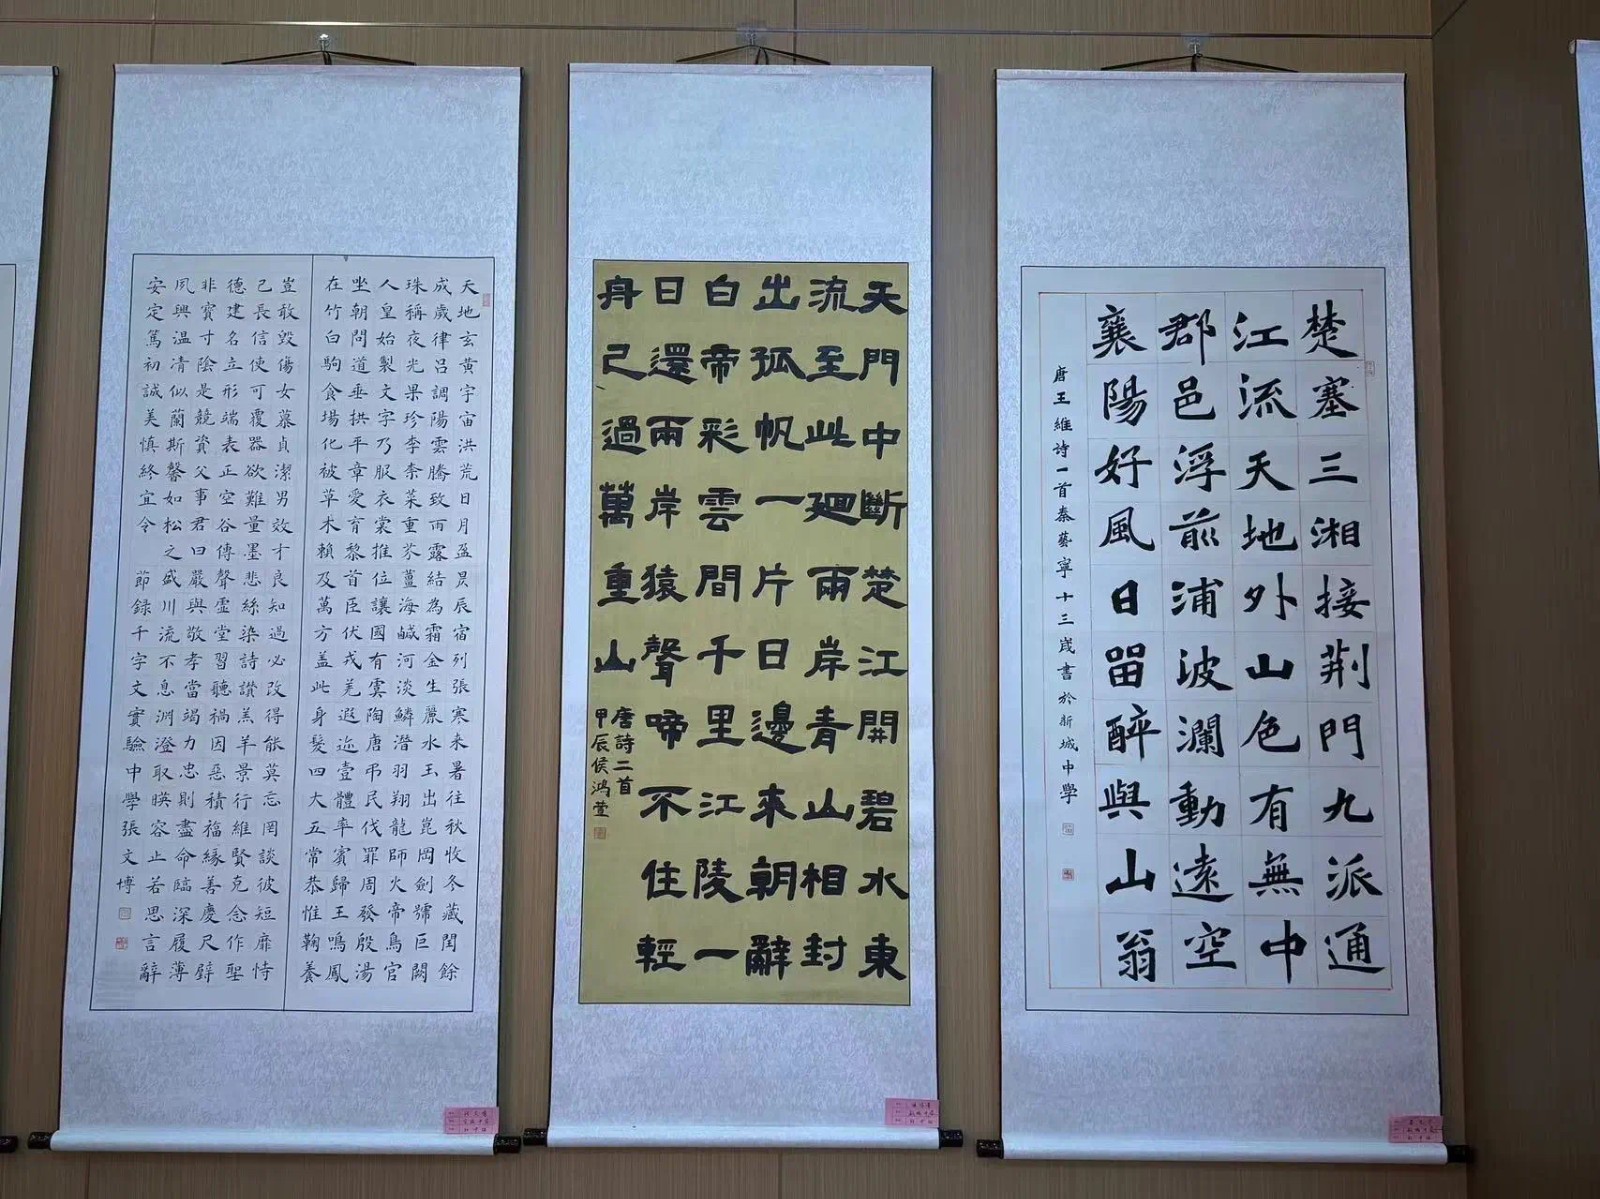 楚塞三湘接荆門九派通
江流天地外山色有無中
郡邑浮前浦波瀾動遠空
襄陽好風日留醉與山翁
唐王維詩一首秦藝寧十三歲書於新城中學
天門中斷楚江開碧水東
流至此廻兩岸青山相封
出孤帆一片日邊來朝辭
白帝彩雲間千里江陵一
日還兩岸猿聲啼不住輕
舟已過萬重山
唐詩二首
甲辰侯鴻萱
天地玄黃宇宙洪荒日月盈昃辰宿列張寒来暑往秋收冬藏閏餘
成歲律呂調陽雲騰致雨露結為霜金生麗水玉出崑岡劍號巨闕
珠稱夜光果珍李柰菜重芥薑海鹹河淡鱗潛羽翔龍師火帝鳥官
人皇始製文字乃服衣裳推位讓國有虞陶唐弔民伐罪周發殷湯
坐朝問道垂拱平章愛育黎首臣伏戎羌遐迩壹體率賓歸王鳴鳳
在竹白駒食場化被草木賴及萬方盖此身髮四大五常恭惟鞠養
豈敢毀傷女慕貞潔男效才良知過必改得能莫忘罔談彼短靡恃
己長信使可覆器欲難量墨悲絲染詩讃羔羊景行維賢克念作聖
德建名立形端表正空谷傳聲虛堂習聽禍因惡積福緣善慶尺璧
非寶寸陰是競資父事君曰嚴與敬孝當竭力忠則盡命臨深履薄
夙興温凊似蘭斯馨如松之盛川流不息淵澄取暎容止若思言辭
安定篤初誠美慎終宜令 節録千字文實驗中學張文博